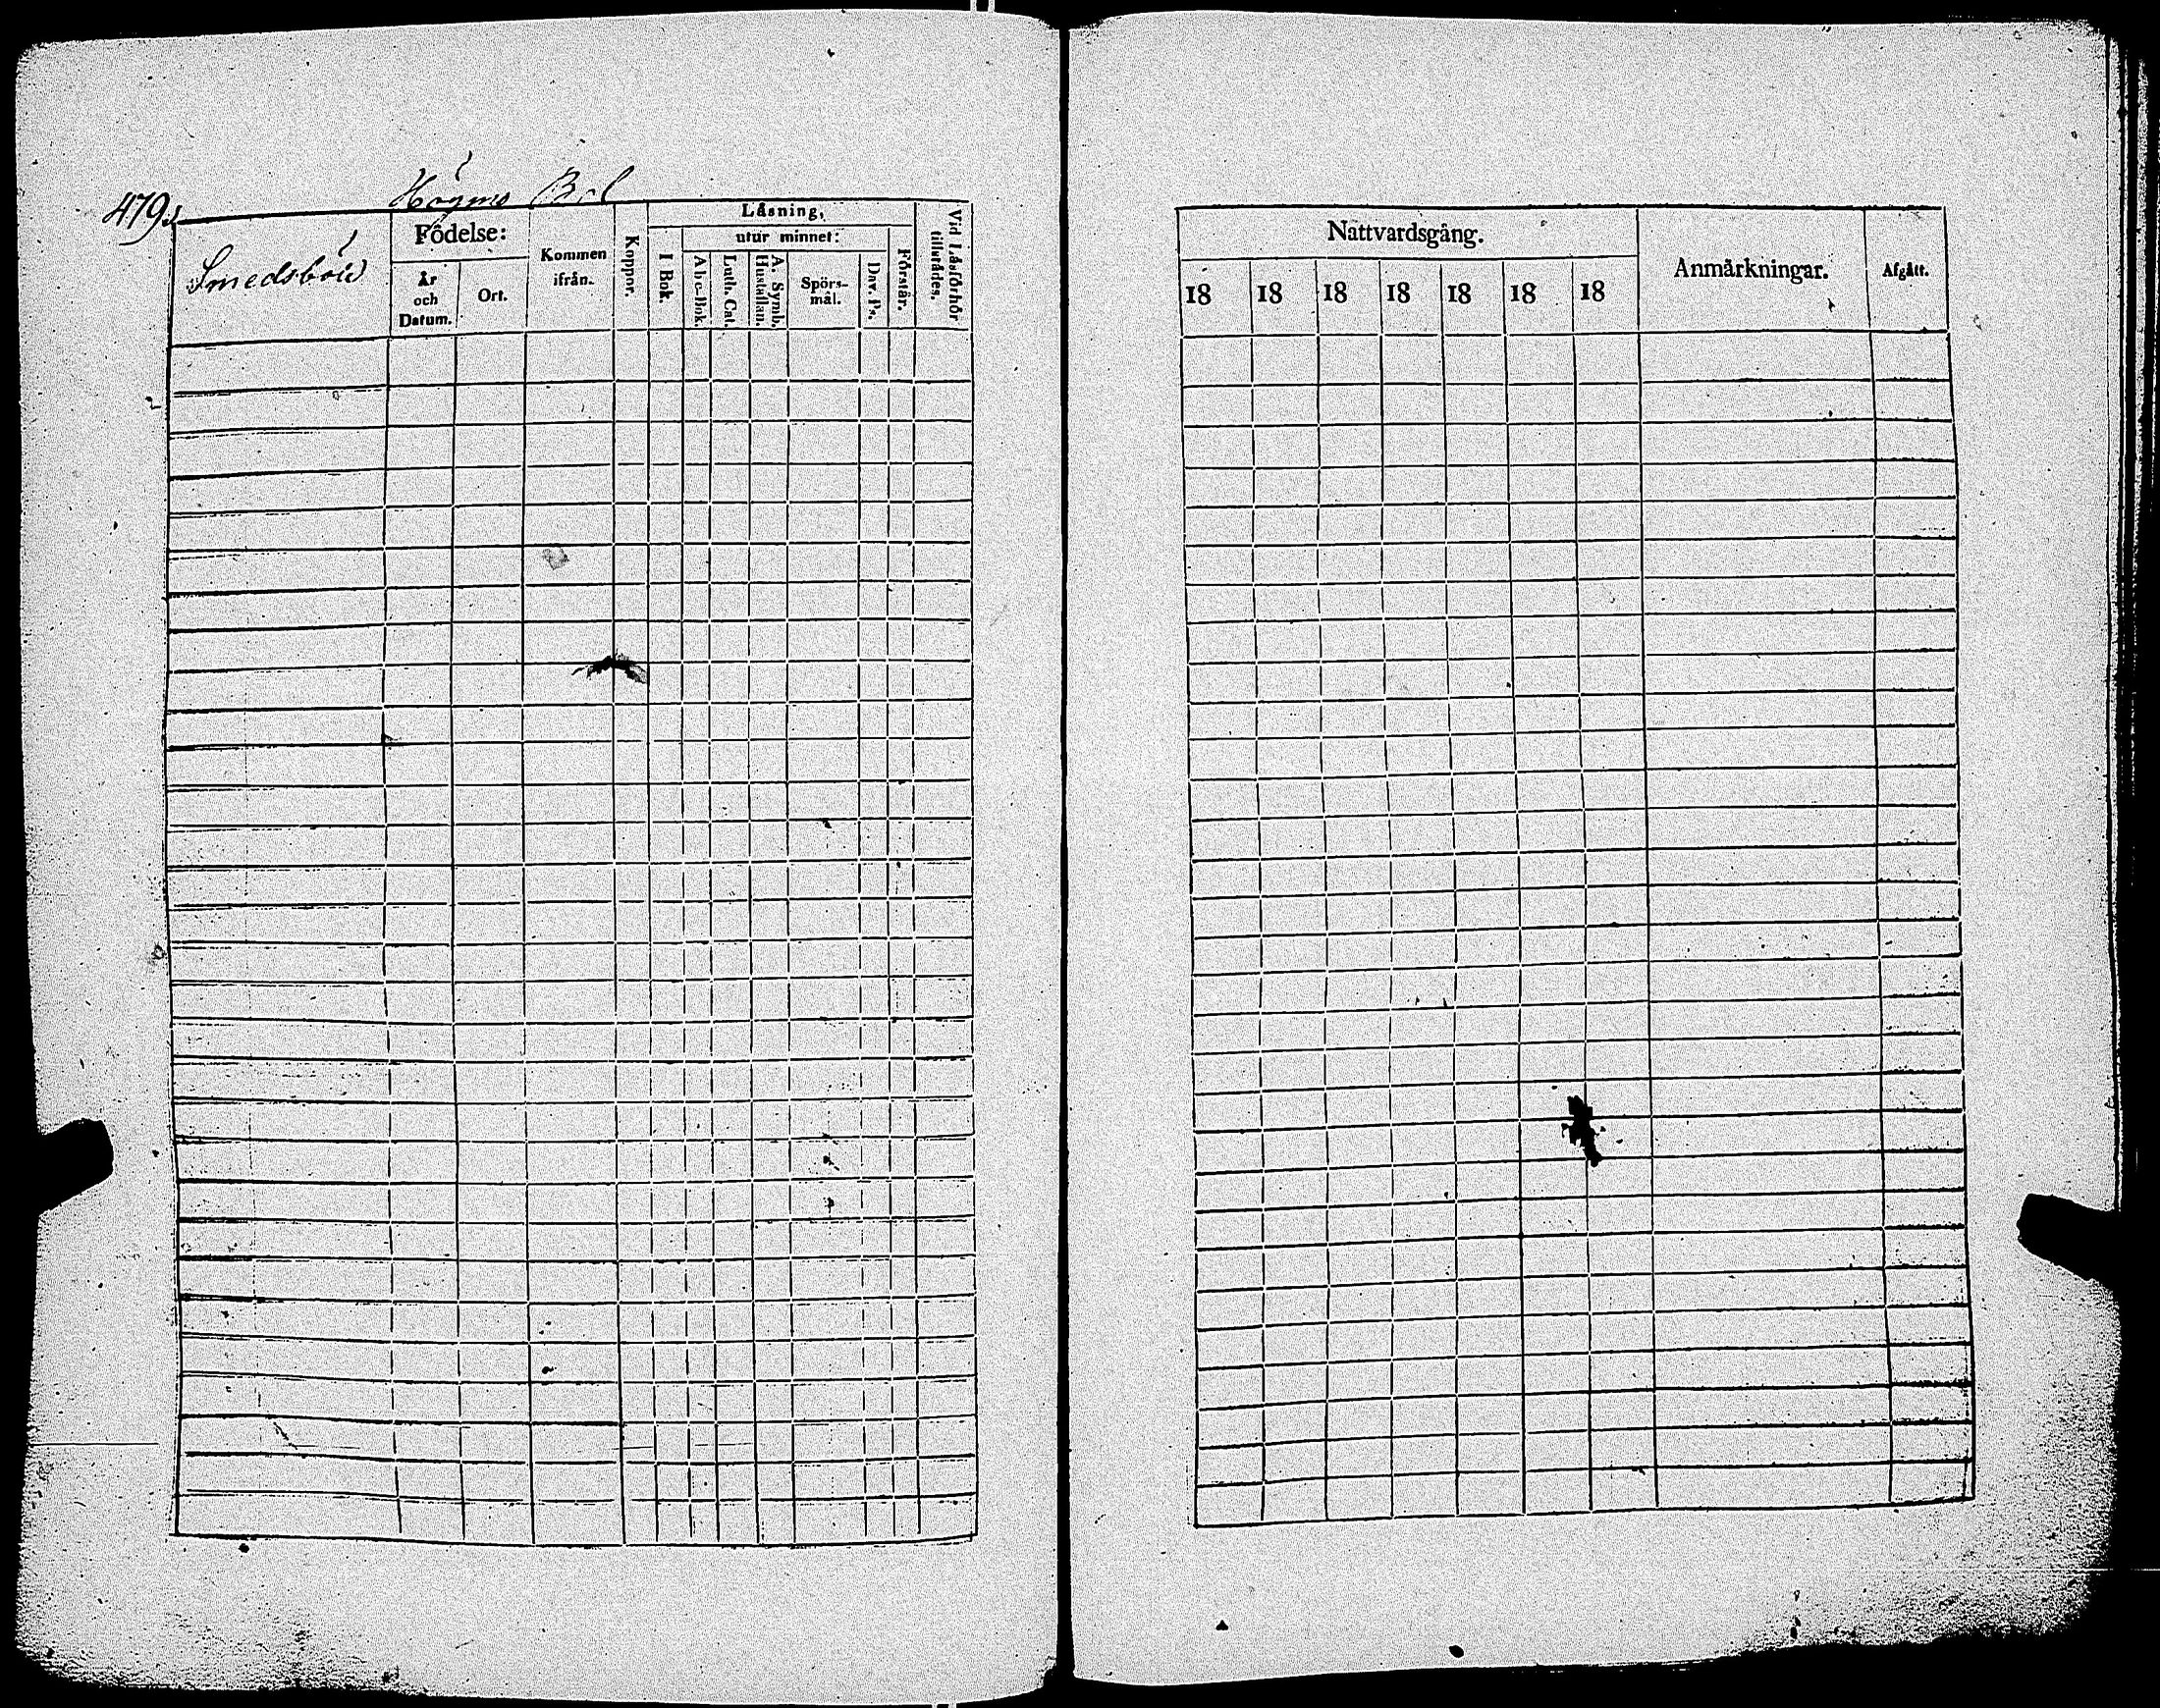 479.
Högmo Bol
Smedsböle
Födelse:
År och Datum.
Ort.
Kommen ifrån.
Koppor.
Läsning,
I Bok.
utur minnet:
Abc-Bok.
Luth. Cat.
A. Symb. Hustaflan.
Spörs-mål.
Dav. Ps.
Förstår.
Vid Läsförhör tillstädes.
Nattvardsgång.
18 18 18 18 18 18 18
Anmärkningar.
Afgått.